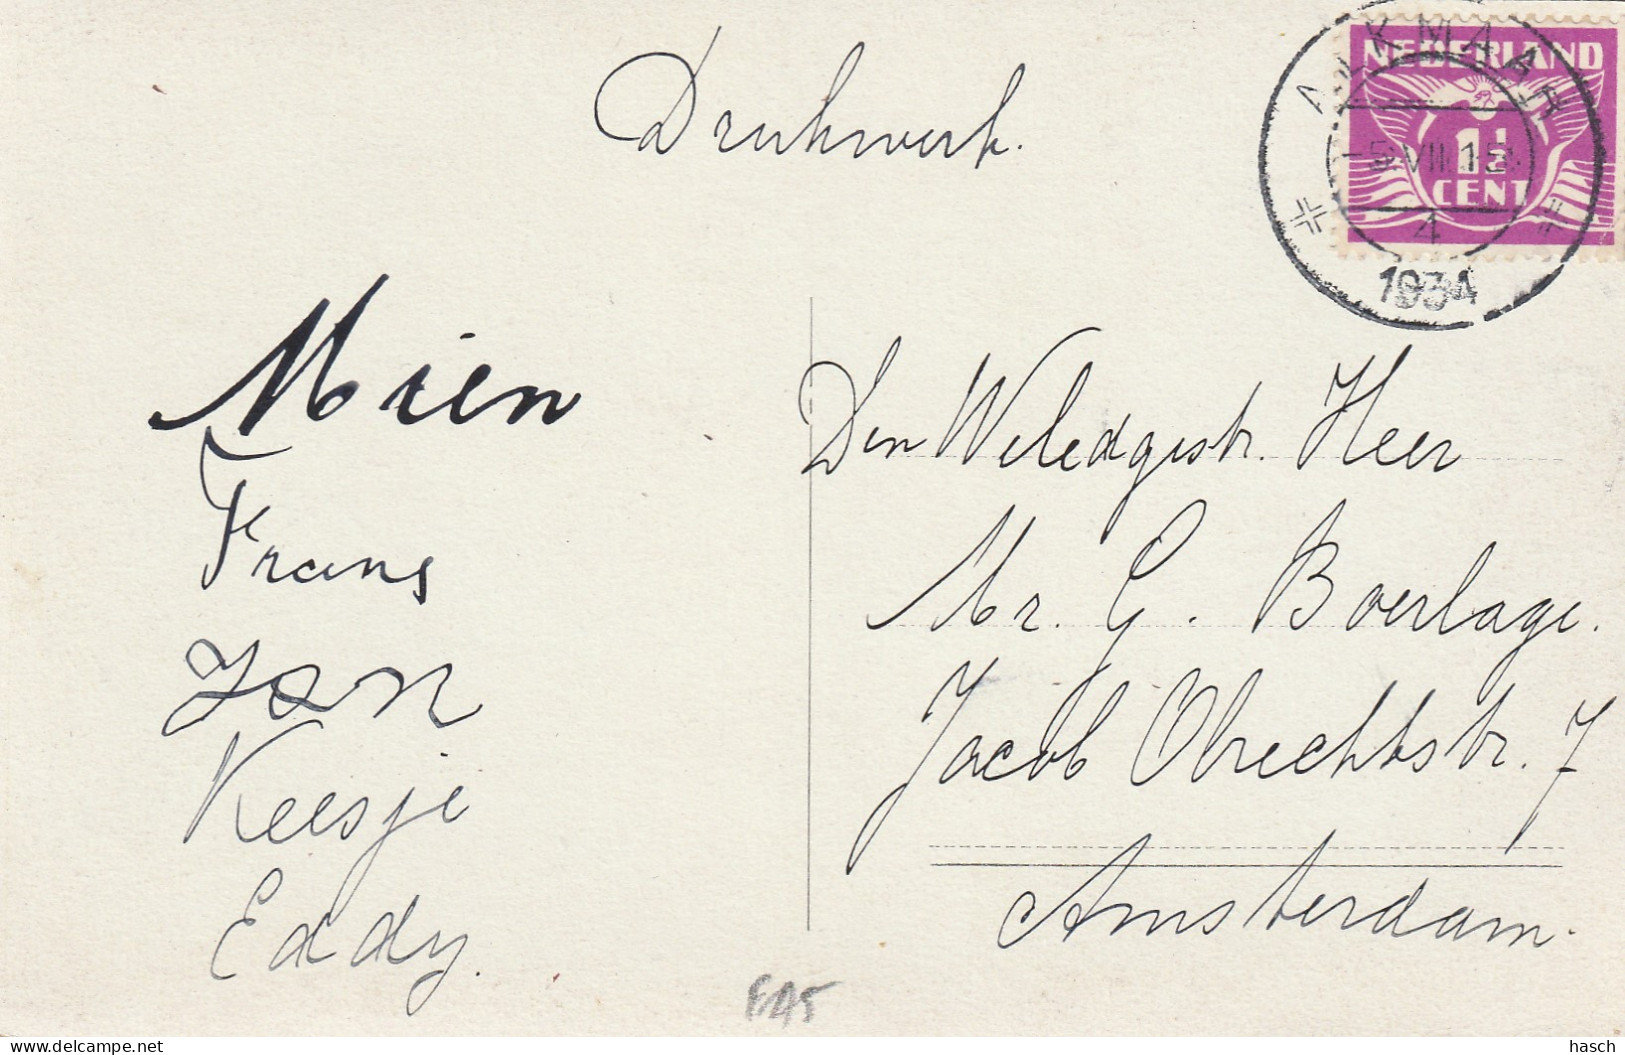 Drukwerk.
NEDERLAND
1½
CENT
ALKMAAR
-5.VII.15
4
1934
Mien
Frans
Jan
Keesje
Eddy.
Den Weledgestr. Heer
Mr. G. Boerlage.
Jacob Obrechtstr. 7
Amsterdam.
delcampe.net
hasch